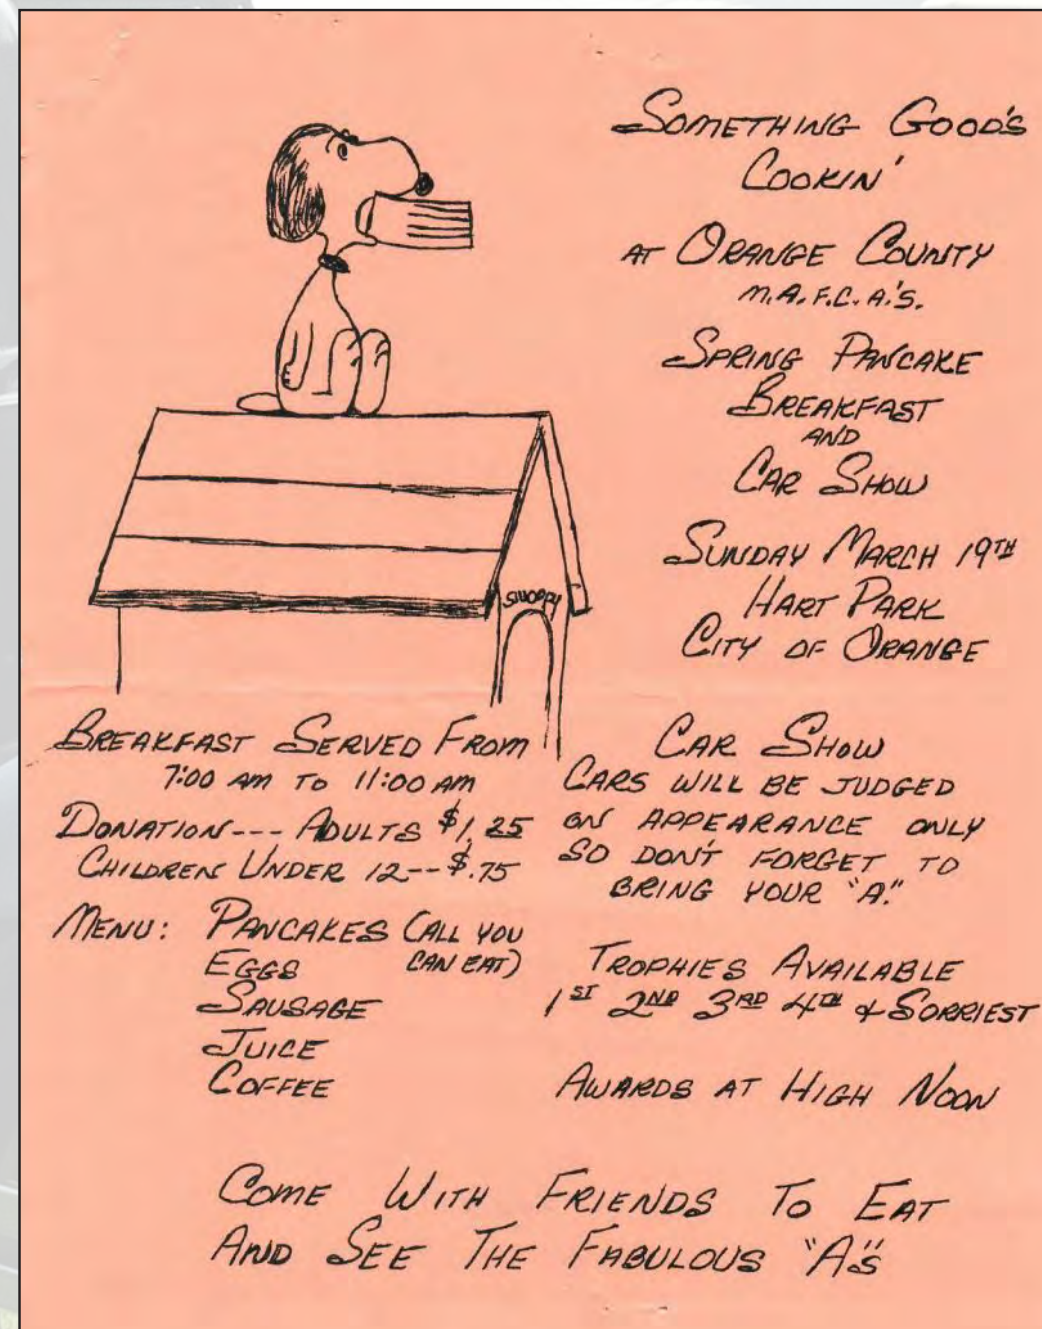 SOMETHING GOOD'S
COOKIN'
AT ORANGE COUNTY
M.A.F.C.A.'S.
SPRING PANCAKE
BREAKFAST
AND
CAR SHOW
SUNDAY MARCH 19TH
HART PARK
CITY OF ORANGE
SNOOPY
BREAKFAST SERVED FROM
7:00 AM TO 11:00 AM
DONATION--- ADULTS $1.25
CHILDREN UNDER 12--$.75
MENU: PANCAKES (ALL YOU
CAN EAT)
EGGS
SAUSAGE
JUICE
COFFEE
CAR SHOW
CARS WILL BE JUDGED
ON APPEARANCE ONLY
SO DON'T FORGET TO
BRING YOUR "A."
TROPHIES AVAILABLE
1ST 2ND 3RD 4TH & SORRIEST
AWARDS AT HIGH NOON
COME WITH FRIENDS TO EAT
AND SEE THE FABULOUS "A"S